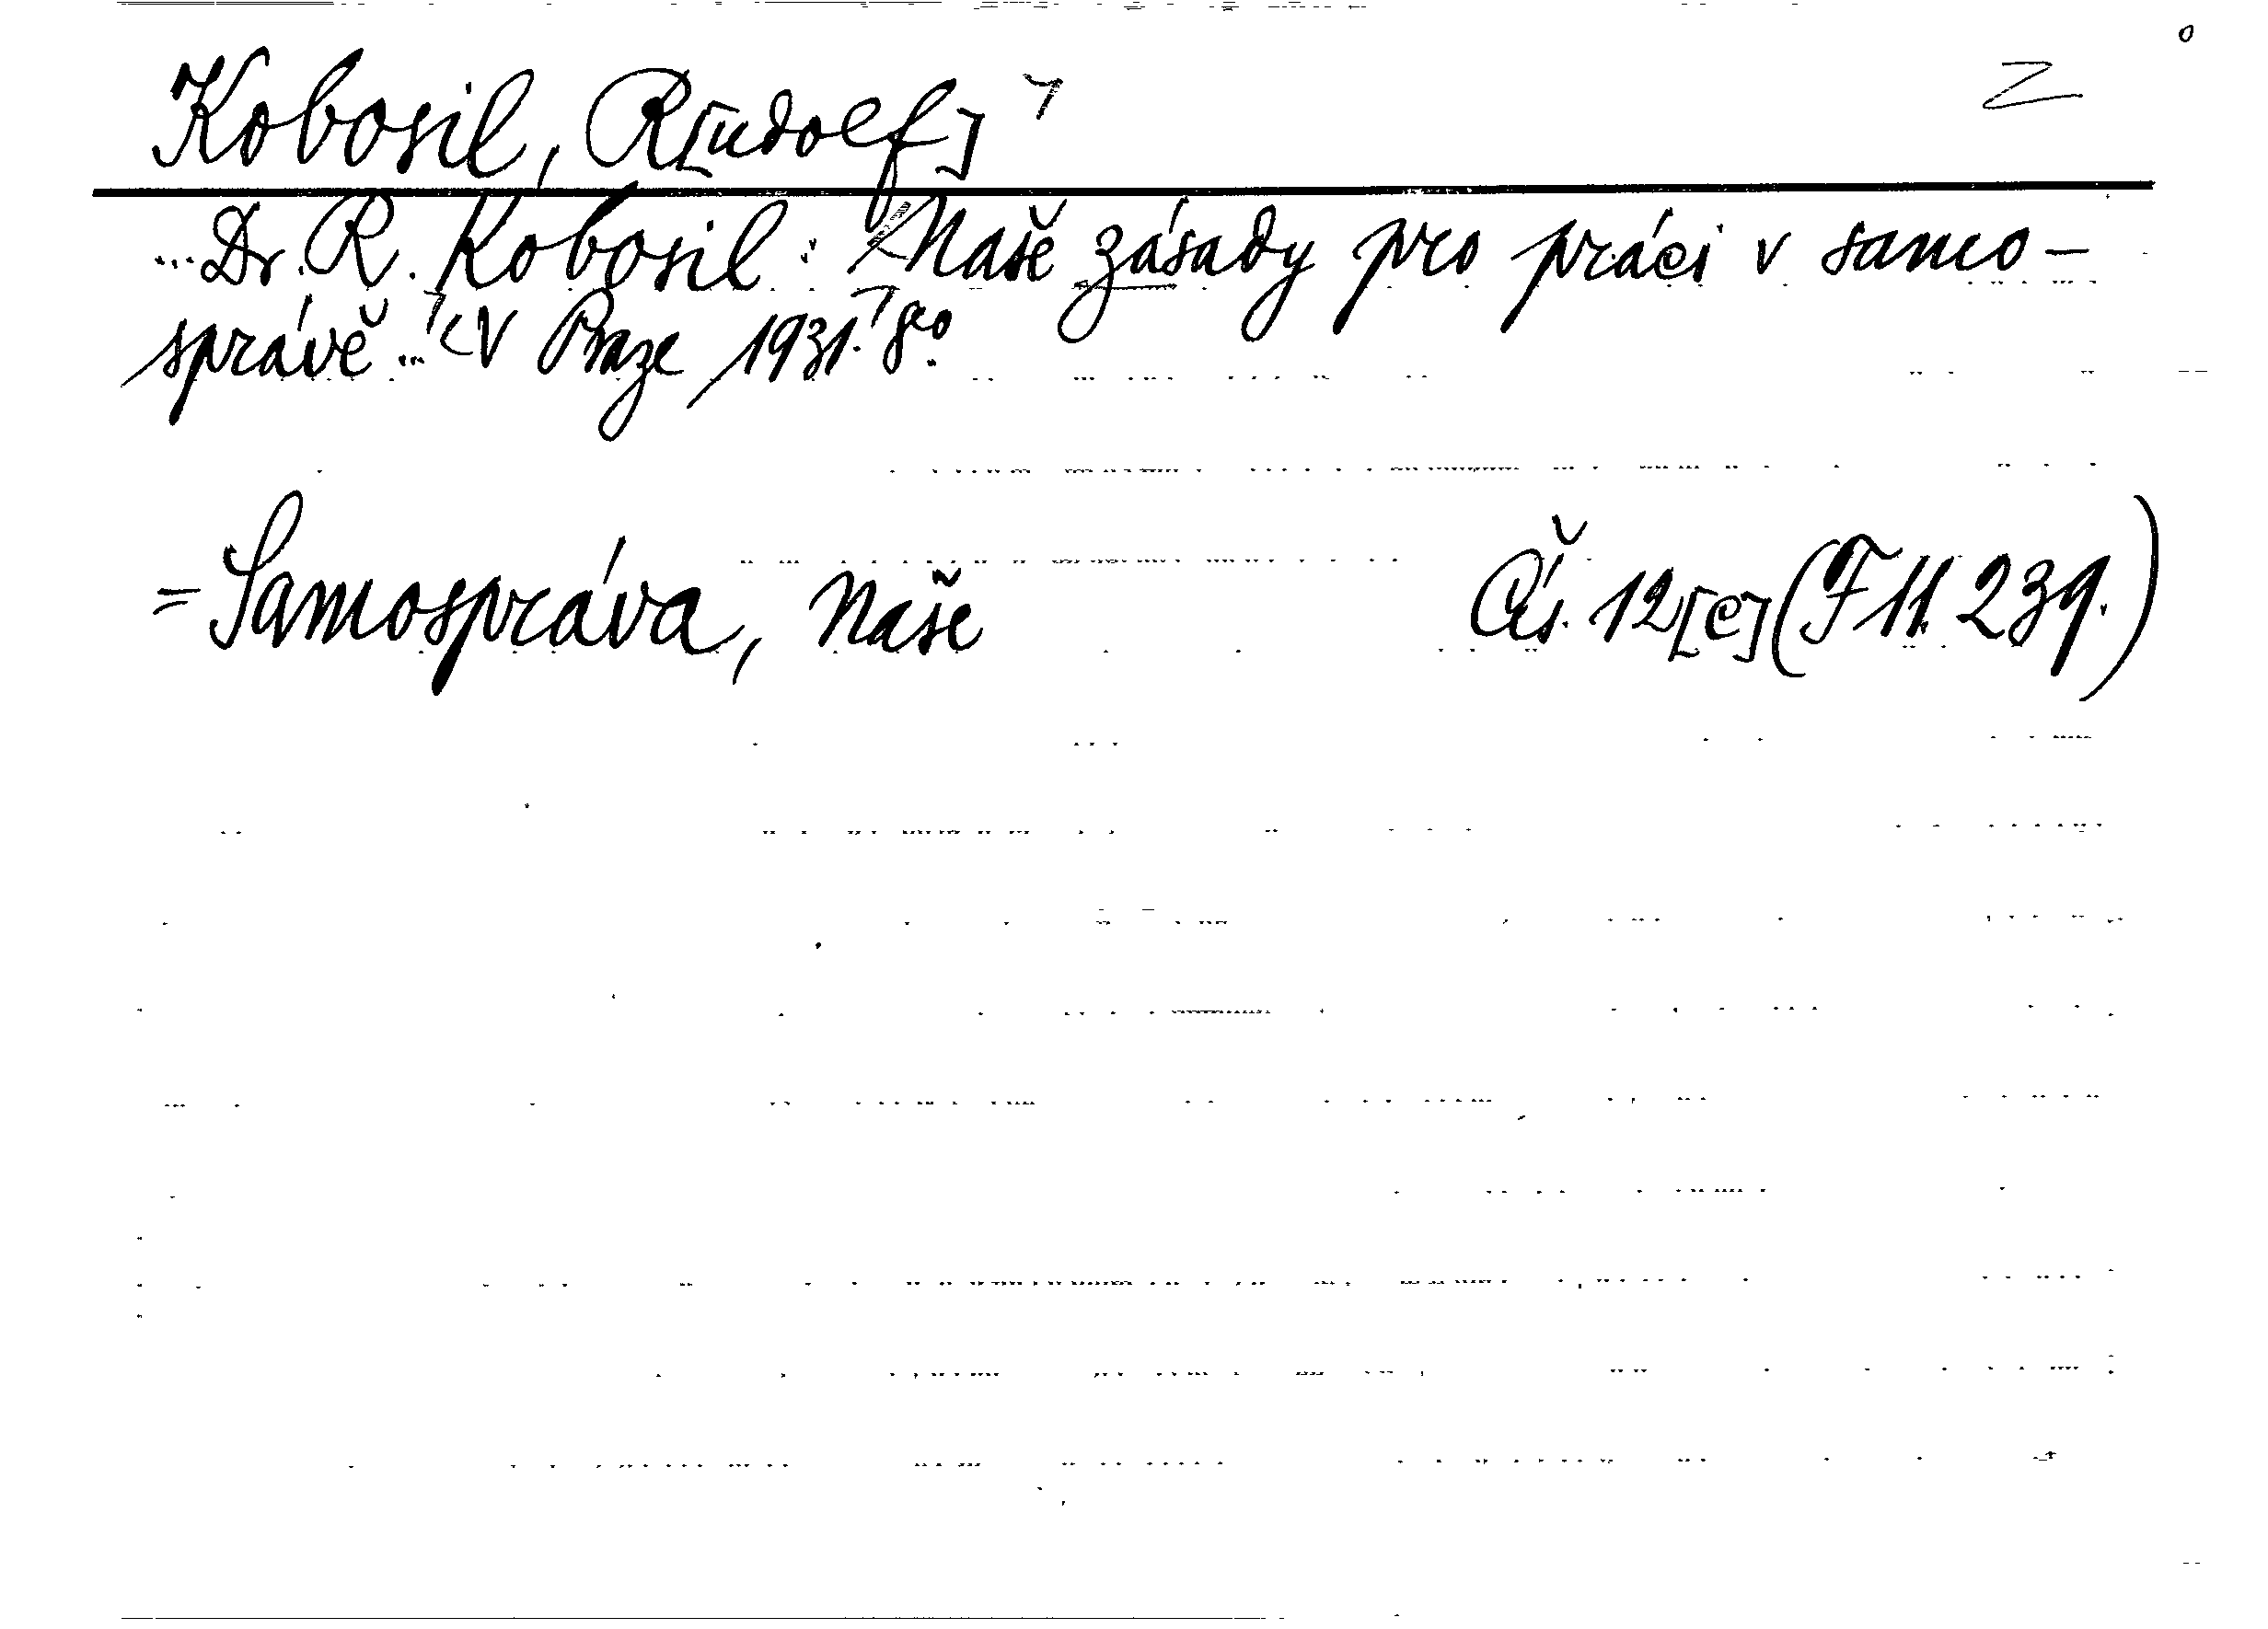 Kobosil, R[udolf]
... Dr. R. Kobosil: Naše zásady pro práci v samo-
správě ... V Praze 1931. 8°.
= Samospráva, Naše Čís. 12[c] (F 11. 239.)